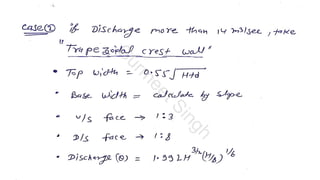 Case② If Discharge more than 14 m³/sec, take
"Trapezoidal crest wall"
• Top width = 0.55 √H+d
• Base width = calculate by slope
• U/S face → 1:3
• D/S face → 1:8
• Discharge (Q) = 1.99 L H^3/2 (H/B)^1/6
Singh